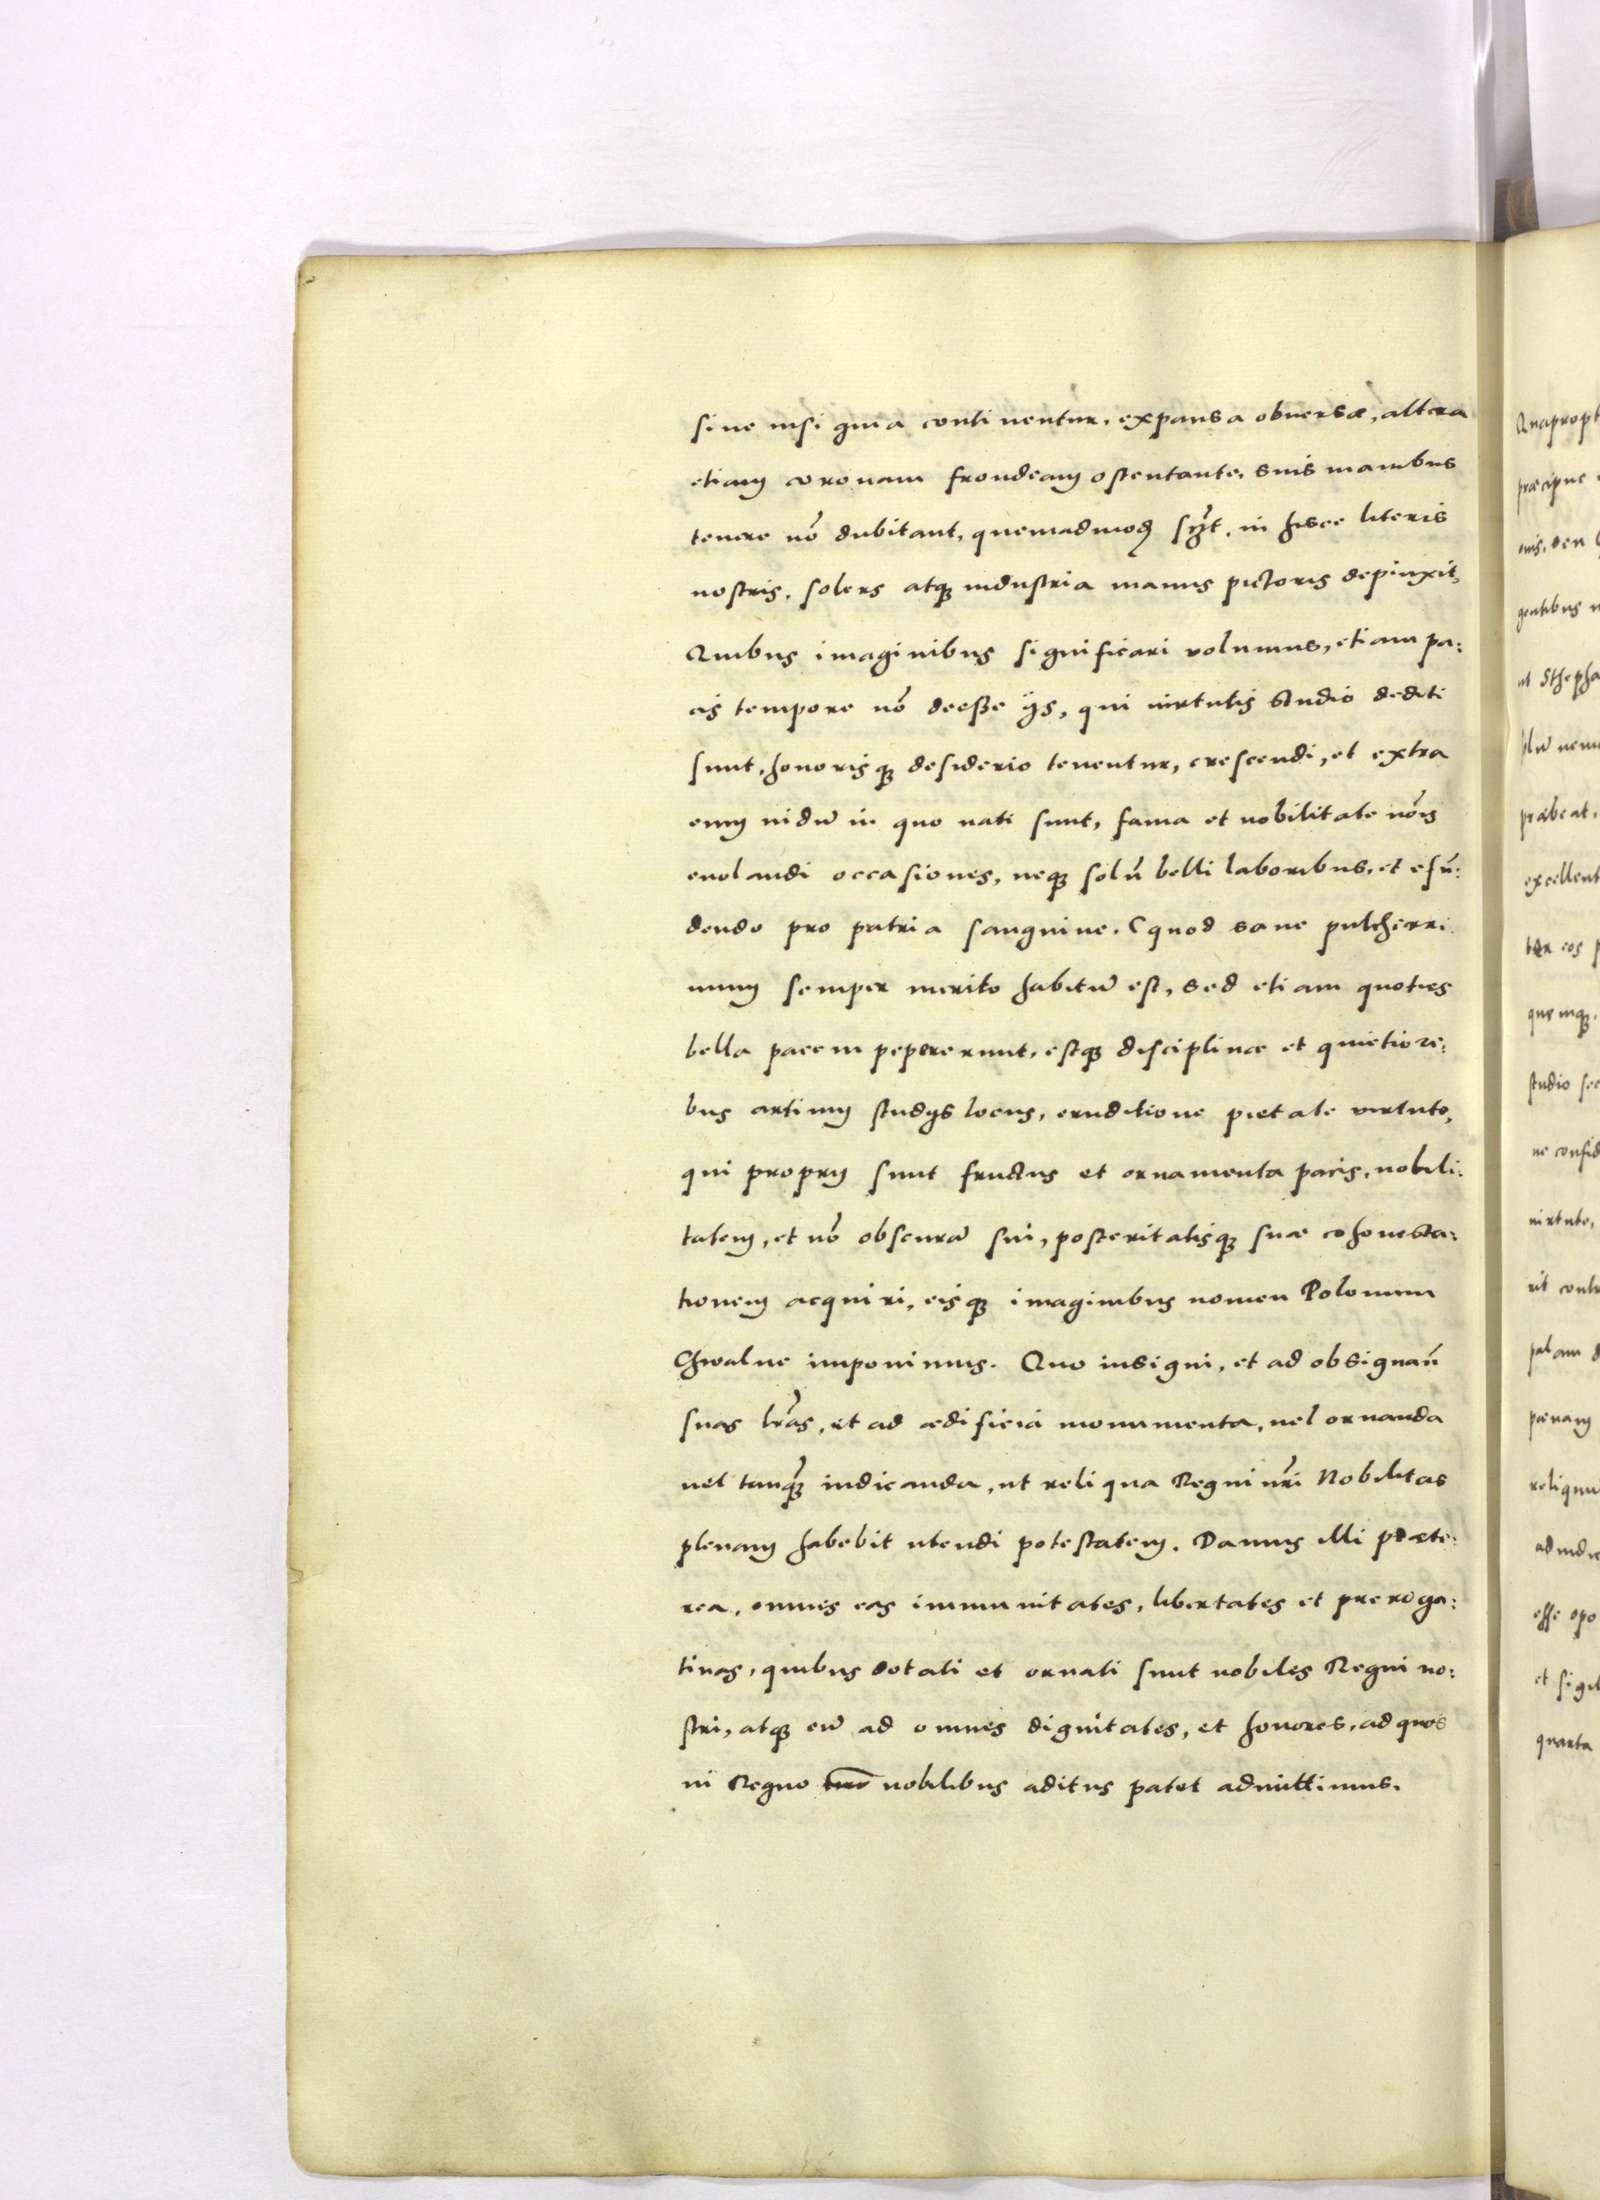 siue insignia continentur, expansa obuersæ, altera
etiam coronam frondeam ostentante, suis manibus
tenere nō dubitant, quemadmodū in hisce literis
nostris, solers atq; industria manus pictoris depinxit,
Quibus imaginibus significari volumus, etiam pa:
cis tempore nō deesse ijs, qui uirtutis studio dediti
sunt, honorisq; desiderio tenentur, crescendi, et extra
eum nidū in quo nati sunt, fama et nobilitate nōis
euolandi occasiones, neq; solū belli laboribus, et efūn:
dendo pro patria sanguine. (quod sane pulcherri
mum semper merito habitū est, sed etiam quoties
bella pacem pepererunt, estq; disciplinæ et quietiore:
bus artium studijs locus, eruditione pietate virtute,
qui proprij sunt fructus et ornamenta pacis, nobili:
tatem, et nō obscurā sui, posteritatisq; suæ cohonesta:
tionem acquiri, eisq; imaginibus nomen Polonum
Chwalne imponimus. Quo insigni, et ad obsignañ
suas lr̃as, et ad ædificia monumenta, uel ornanda
uel tanq̃ indicanda, ut reliqua Regni nr̃i Nobilitas
plenam habebit utendi potestatem. Damus illi præte:
rea, omnes eas immunitates, libertates et preroga:
tiuas, quibus dotati et ornati sunt nobiles Regni no:
stri, atq; eū ad omnes dignitates, et honores, ad quos
in Regno nobilibus aditus patet admittimus.
Quapropt
præcipue
gentibus
ut Stepha
præbeat,
excellent
ter eos
studio
ne confid
uirtute,
palam
pænam
reliqu
adiudic
esse opo
et sigil
quarta